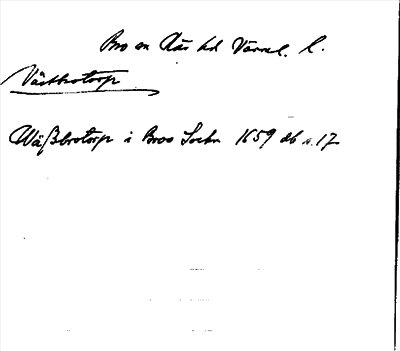 Bro sn Näs hd Värml. l.
Västbrotorp
Wäßbrotorp i Broo Sochn 1659 db s. 17